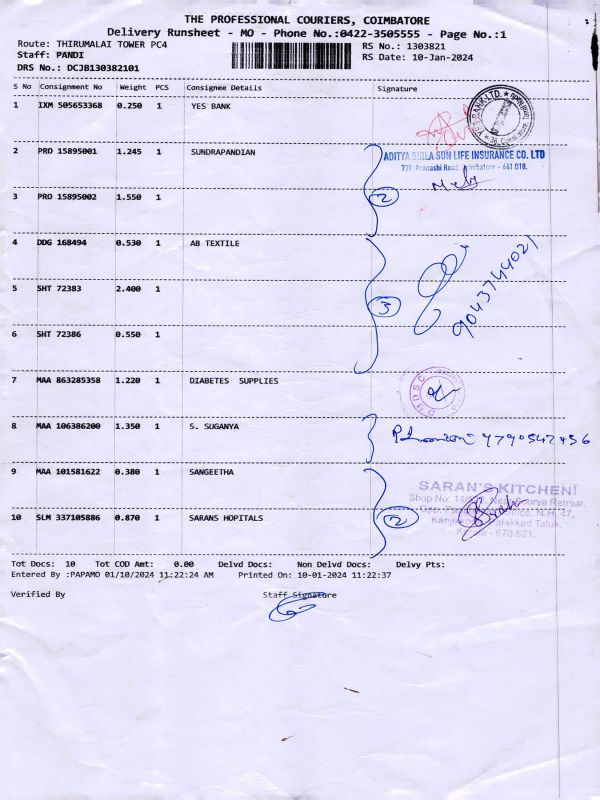 THE PROFESSIONAL COURIERS, COIMBATORE
Delivery Runsheet - MO - Phone No.:0422-3505555 - Page No.:1
Route: THIRUMALAI TOWER PC4 RS No.: 1303821
Staff: PANDI RS Date: 10-Jan-2024
DRS No.: DCJB130382101
S No Consignment No Weight PCS Consignee Details Signature
1 IXM 505653368 0.250 1 YES BANK
2 PRO 15895001 1.245 1 SUNDRAPANDIAN
ADITYA BIRLA SUN LIFE INSURANCE CO. LTD
739, Avanashi Road, Coimbatore - 641 018.
3 PRO 15895002 1.550 1 2
4 DDG 168494 0.530 1 AB TEXTILE
5 SHT 72383 2.400 1 3 9043744021
6 SHT 72386 0.550 1
7 MAA 863285358 1.220 1 DIABETES SUPPLIES
8 MAA 106386200 1.350 1 S. SUGANYA
9 MAA 101581622 0.380 1 SANGEETHA
SARAN'S KITCHEN
10 SLM 337105886 0.870 1 SARANS HOPITALS 2
Tot Docs: 10 Tot COD Amt: 0.00 Delvd Docs: Non Delvd Docs: Delvy Pts:
Entered By :PAPAMO 01/10/2024 11:22:24 AM Printed On: 10-01-2024 11:22:37
Verified By Staff Signature